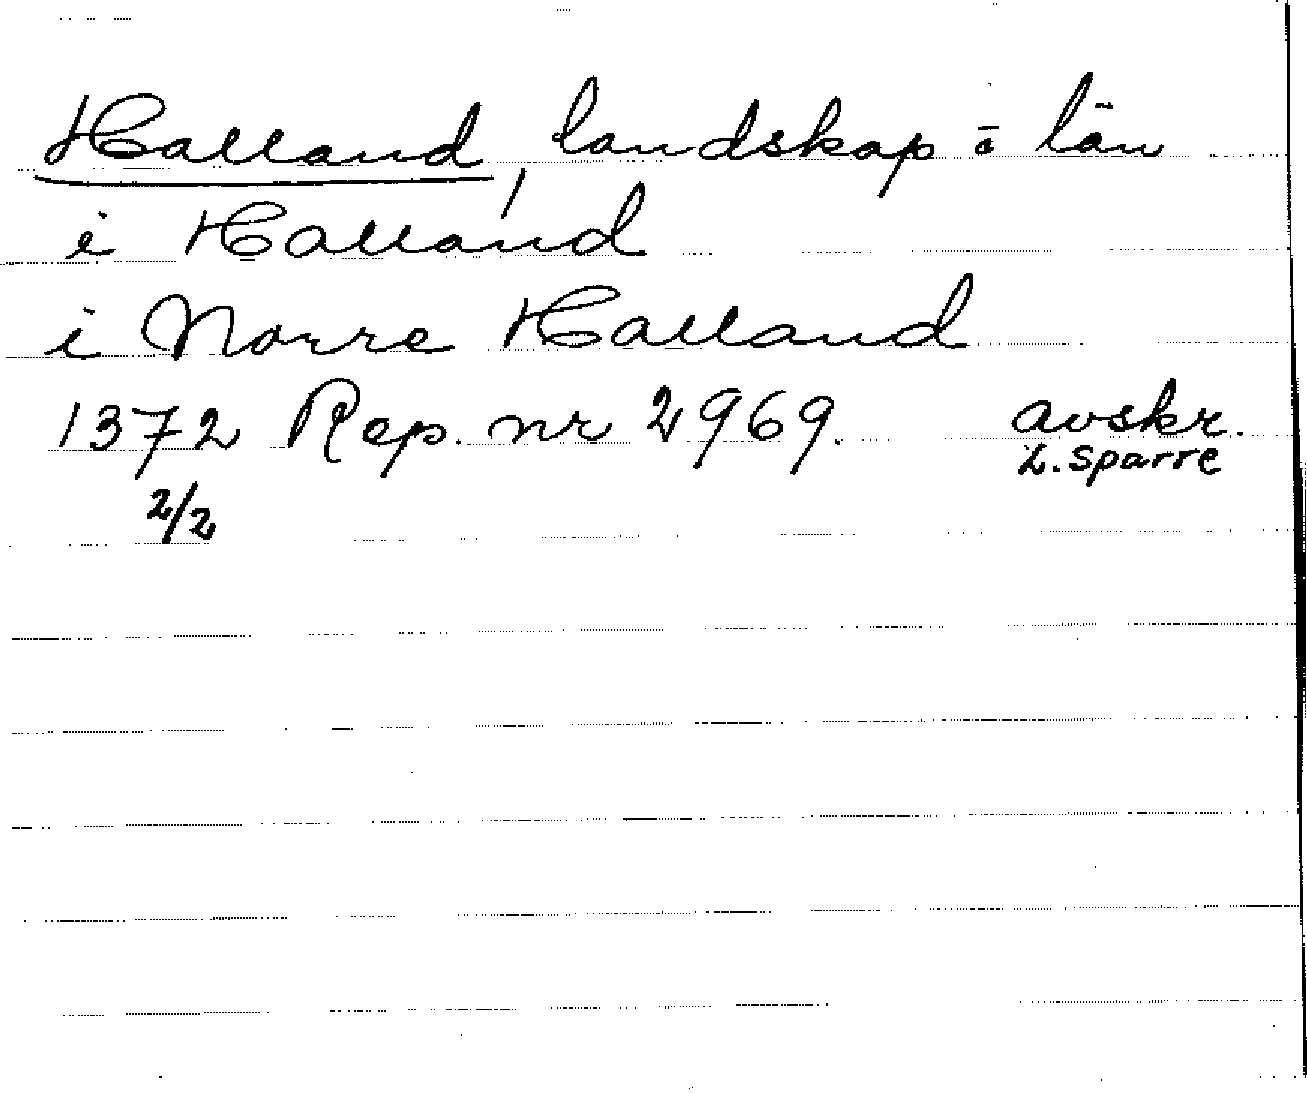 Halland, landskap o län
i Halland
i Norre Halland
1372 Rep. nr 2969. avskr.
L. Sparre
2/2